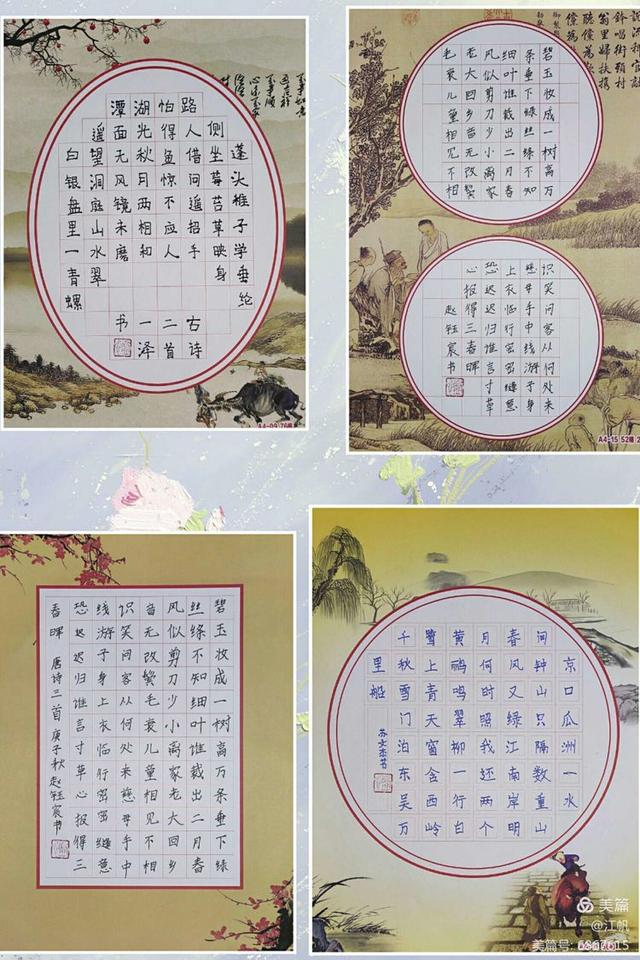 蓬头稚子学垂纶
侧坐莓苔草映身
路人借问遥招手
怕得鱼惊不应人
湖光秋月两相和
潭面无风镜未磨
遥望洞庭山水翠
白银盘里一青螺
古诗
二首
一泽
书
碧玉妆成一树高万
条垂下绿丝绦不知
细叶谁裁出二月春
风似剪刀少小离家
老大回乡音无改鬓
毛衰儿童相见不相
识笑问客从何处来
慈母手中线游子身
上衣临行密密缝意
恐迟迟归谁言寸草
心报得三春晖
赵钰宸书
A4-15 52
碧玉妆成一树高万条垂下绿
丝绦不知细叶谁裁出二月春
风似剪刀少小离家老大回乡
音无改鬓毛衰儿童相见不相
识笑问客从何处来慈母手中
线游子身上衣临行密密缝意
恐迟迟归谁言寸草心报得三
春晖 唐诗三首庚子秋赵钰宸书
京口瓜洲一水
间钟山只隔数重山
春风又绿江南岸明
月何时照我还两个
黄鹂鸣翠柳一行白
鹭上青天窗含西岭
千秋雪门泊东吴万
里船
苏文杰书
美篇
@江帆
美篇号: